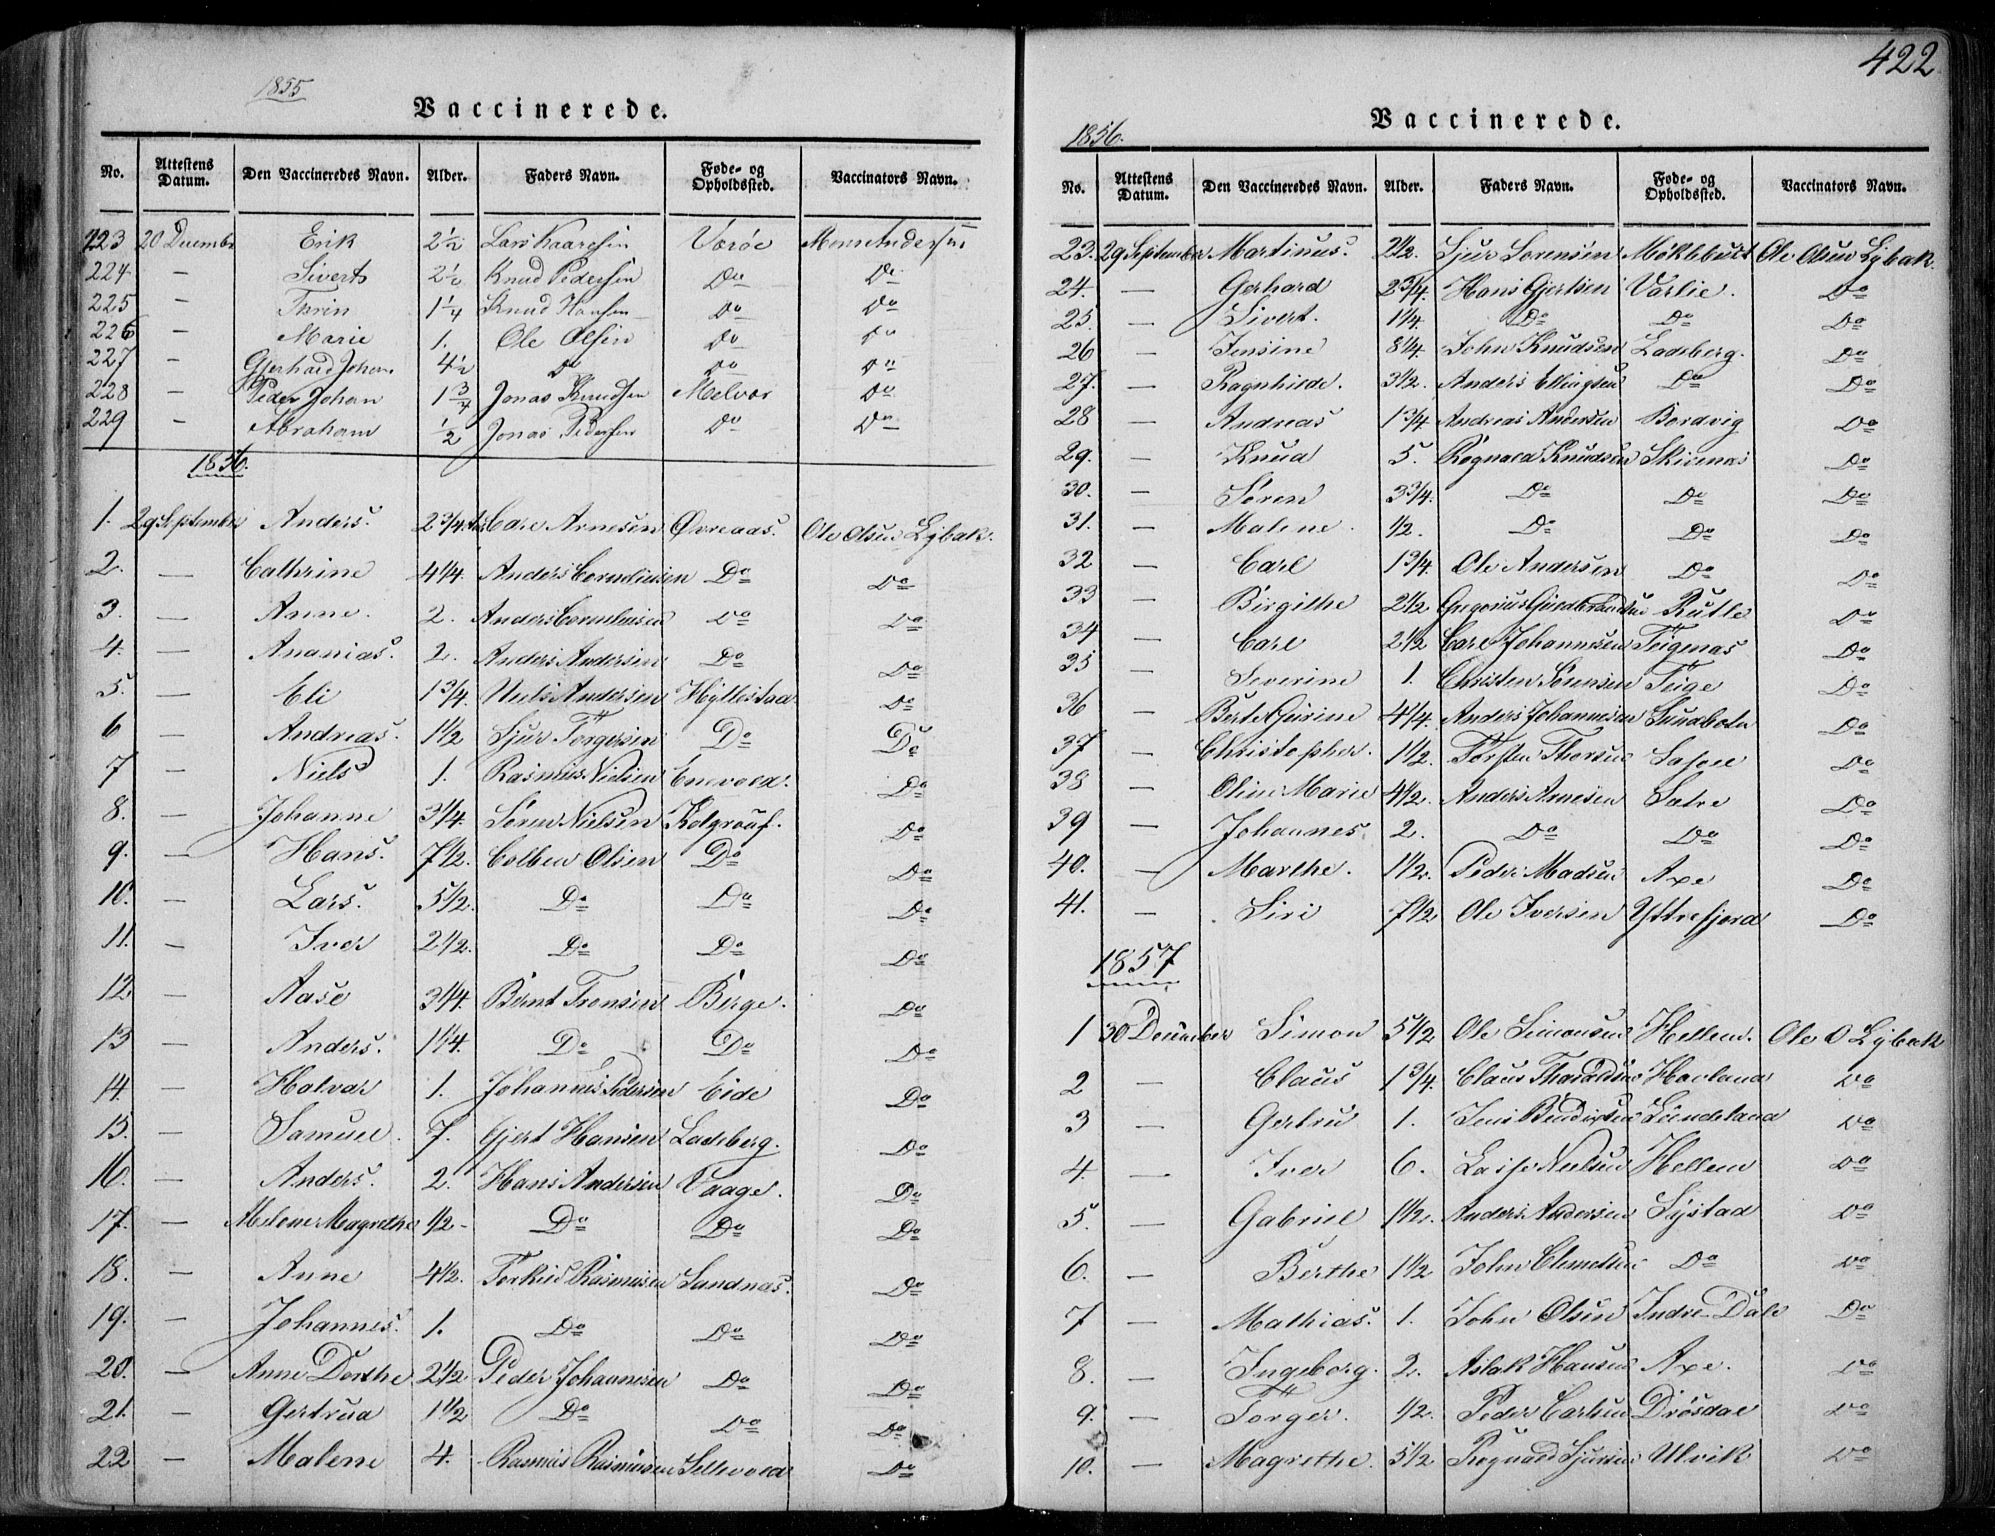 1855
Vaccinerede.
No. Attestens Datum. Den Vaccineredes Navn. Alder. Faders Navn. Føde- og Opholdssted. Vaccinators Navn.
223 20 Decembr Erik 2 1/2 Lars Værøe
224 — Sivert 2 1/2 Knud Pedersen Do Do
225 — Thrin 1 1/4 Knud Hansen Do Do
226 — Marie 1. Ole Olsen Do Do
227 — Gjerhard Johan 4 1/2 Do Do Do
228 — Peder Johan 1 3/4 Jonas Knudsen Melvær Do
229 — Abraham 1/2 Jonas Pedersen Do Do
1856.
1. 29 September Anders. 2 3/4 Arnesen Øvreaas. Ole Olsen Lybak.
2. — Cathrine 4 1/4. Anders Corneliusen Do Do
3. — Anne. 2. Anders Corneliusen Do Do
4. — Ananias. 2. Anders Andersen Do Do
5. — Eli 1 3/4. Niels Andersen Hyllestad Do
6 — Andreas. 1 1/2 Sjur Törgersen Do Do
7 — Niels 1. Rasmus Nielsen Enevold. Do
8. — Johanne 3 1/4. Sören Nielsen Kolgraaf. Do
9. — Hans. 7 1/2. Colben Olsen Do Do
10. — Lars. 5 1/2. Do Do Do
11. — Iver 2 1/2. Do Do Do
12 — Aase 3 1/4. Bernt Tronsen Berge. Do
13 — Anders. 1 1/4. Do Do Do
14 — Halvar 1. Johannes Pedersen Eide Do
15. — Samuel. 7. Gjert Hansen Ladeberg. Do
16. — Anders. 2. Hans Andersen Vaage. Do
17. — Melene Magrethe 1/2 - Do Do Do
18. — Anne 4 1/2. Törkild Rasmusen Sandnæs. Do
19. — Johannes. 1. Do Do Do
20. — Anne Dorthe 2 1/2 Peder Johannesen Do Do
21. — Gertrud 1 1/2 Do Do Do
22 — Malene 4. Rasmus Rasmusen Sellevold Do
422
1856.
Vaccinerede.
No. Attestens Datum. Den Vaccineredes Navn. Alder. Faders Navn. Føde- og Opholdssted. Vaccinators Navn.
23. 29 September Martinus. 2 1/2. Sjur Sorensen Möklebust Ole Olsen Lybak.
24. — Gerhard 2 3/4. Hans Gjertsen Varlie. Do
25. — Sivert. 1 1/4. Do Do Do
26 — Jensine 8 1/4 John Knudsen Ladeberg. Do
27. — Ragnhilde. 3 1/2. Anders Ellingsen Do Do
28 — Andreas 1 3/4 Andreas Andersen Bordvig Do
29. — Knud 5. Rognald Knudsen Skivenæs Do
30. — Sören 3 3/4. Do Do Do
31. — Malene. 1/2. Do Do Do
32 — Carl 1 3/4. Ole Andersen Do Do
33 — Birgithe 2 1/2. Gregorius Rutle Do
34 — Carl 2 1/2 Carl Johannesen Teigenæs Do
35 — Severine 1. Christen Sörensen Teige Do
36 — Berte Gurine 4 1/4. Anders Johannesen Do
37 — Christopher. 1 1/2. Törsten Thorsen Do
38 — Oline Marie 4 1/2. Anders Arnesen Sætre Do
39 — Johannes 2. Do Do Do
40. — Marthe. 1 1/2. Peder Madsen Axe Do
41. — Siri 7 1/2 Ole Iversen Yttrefjord Do
1857
1 30 December Simon 5 1/2 Ole Simonsen Hellem. Ole O Lybak
2 — Claus 1 3/4. Claus Tharaldsen Havland Do
3 — Gertru 1. Jens Do
4. — Iver 6. Lasse Nielsen Hellem Do
5. — Gabriel 1 1/2. Anders Andersen Systad Do
6. — Berthe 1 1/2 John Clemetsen Do Do
7 — Mathias. 1. John Olsen Indre Dale Do
8. — Ingeborg. 2. Aslak Hansen Axe. Do
9. — Törger. 1/2. Peder Carlsen Drösdal Do
10. — Magrethe. 5 1/2 Rognald Sjursen Ulvik Do